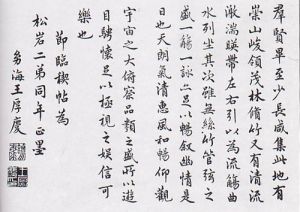 羣賢畢至少長咸集此地有
崇山峻領茂林脩竹又有清流
激湍暎帶左右引以為流觴曲
水列坐其次雖無絲竹管弦之
盛一觴一詠亦足以暢敘幽情是
日也天朗氣清惠風和暢仰觀
宇宙之大俯察品類之盛所以遊
目騁懷足以極視之娛信可
樂也
節臨禊帖為
松岩二弟同年正墨
海王厚慶